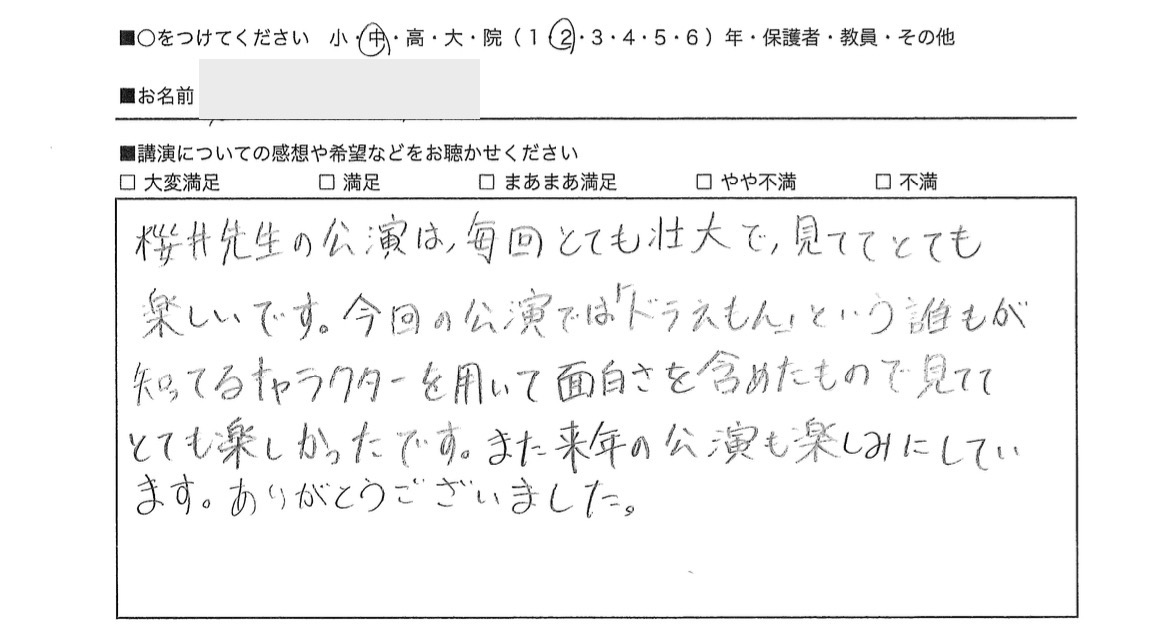 ■○をつけてください 小・中・高・大・院（1・2・3・4・5・6）年・保護者・教員・その他
■お名前
■講演についての感想や希望などをお聴かせください
□ 大変満足 □ 満足 □ まあまあ満足 □ やや不満 □ 不満
桜井先生の公演は,毎回とても壮大で,見ててとても
楽しいです。今回の公演では「ドラえもん」という誰もが
知ってるキャラクターを用いて面白さを含めたもので見てて
とても楽しかったです。また来年の公演も楽しみにしてい
ます。ありがとうございました。